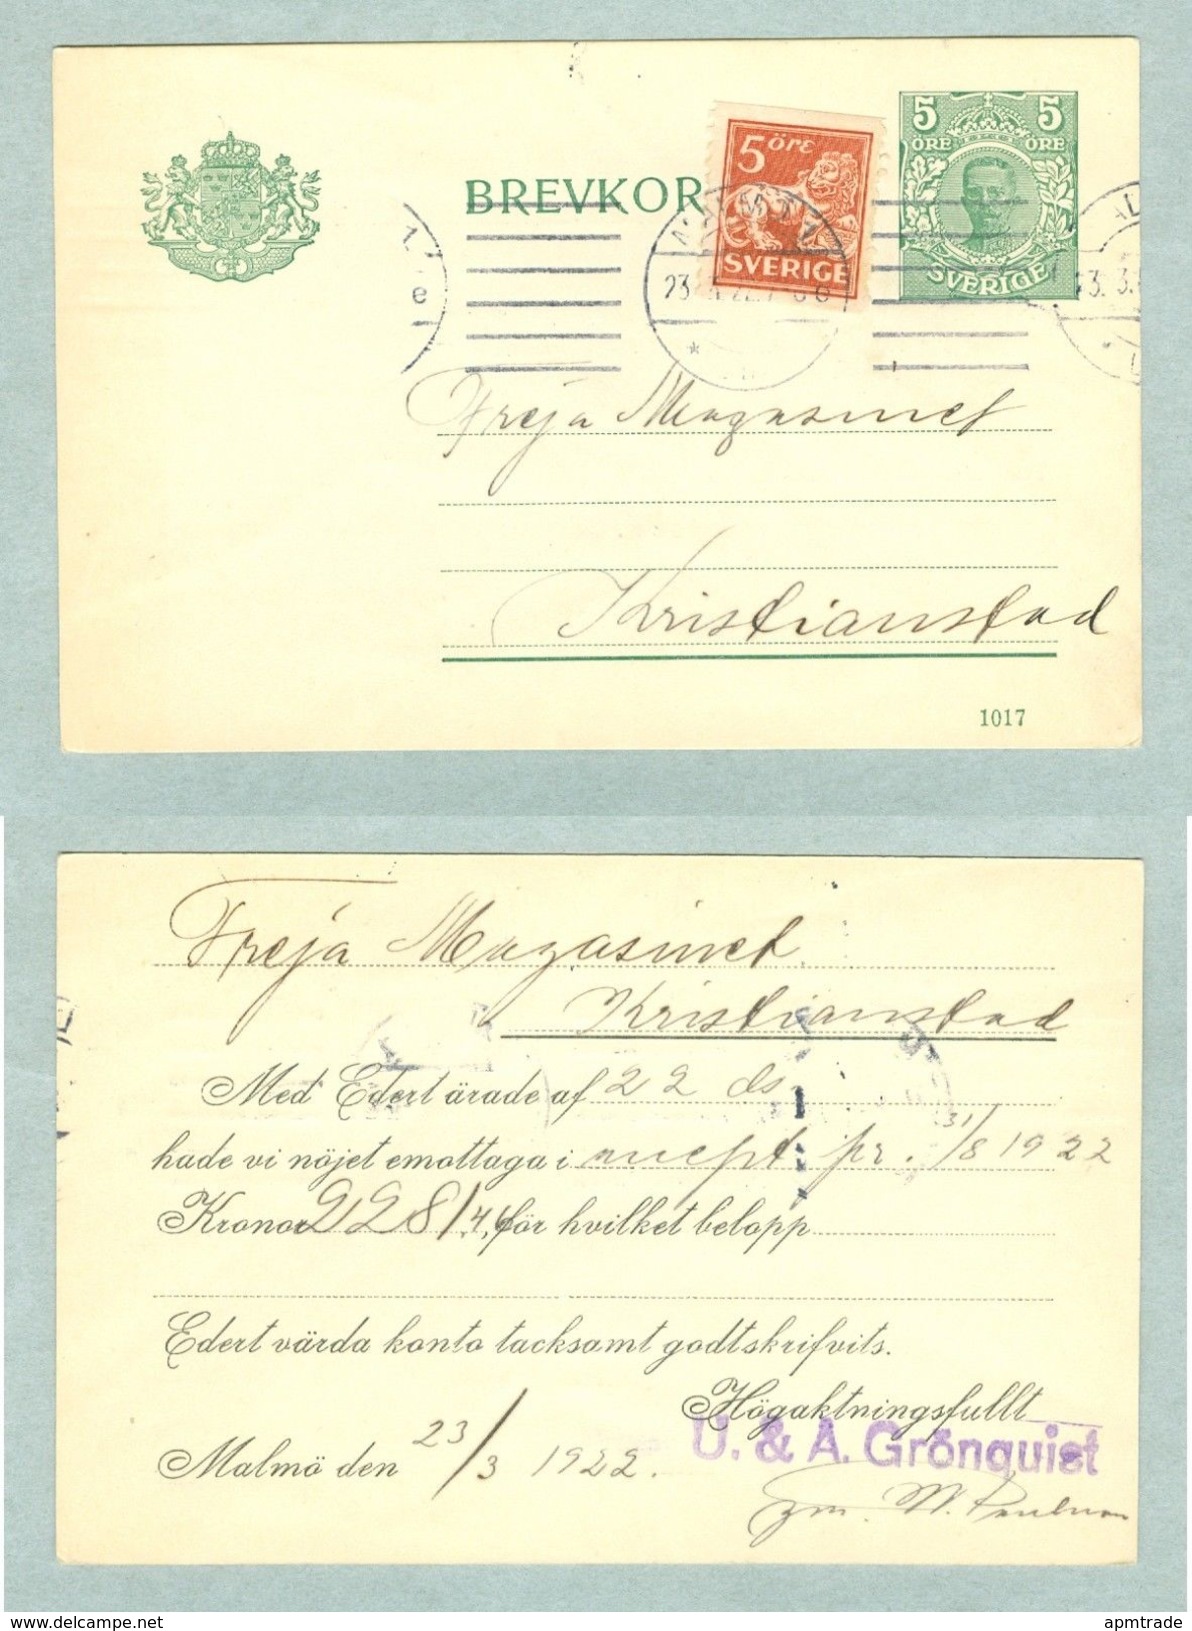 5 5
ÖRE ÖRE
5 öre
BREVKOR
SVERIGE
SVERIGE
Freja Magasinet
Kristianstad
1017
Freja Magasinet
Kristianstad
Med Edert ärade af 22 ds
hade vi nöjet emottaga i accept pr. 31/8 1922
Kronor 228/ för hvilket belopp
Edert värda konto tacksamt godtskrifvits.
Högaktningsfullt
U. & A. Grönquist
Malmö den 23/3 1922.
delcampe.net
apmtrade